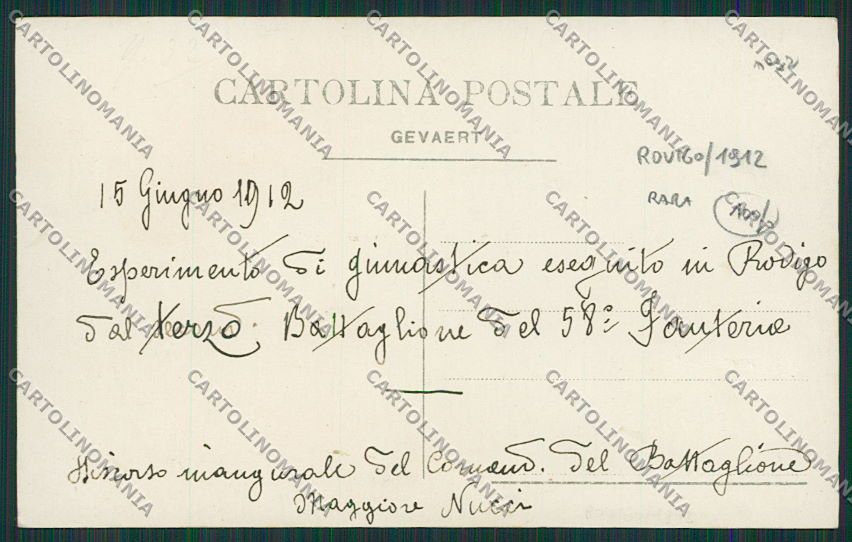 CARTOLINA POSTALE
GEVAERT
ROVIGO/1912
RARA
15 Giugno 1912
Esperimento di ginnastica eseguito in Rovigo
dal terzo Battaglione del 58º Fanteria
Discorso inaugurale del Comand. del Battaglione
Maggiore Nucci
CARTOLINOMANIA